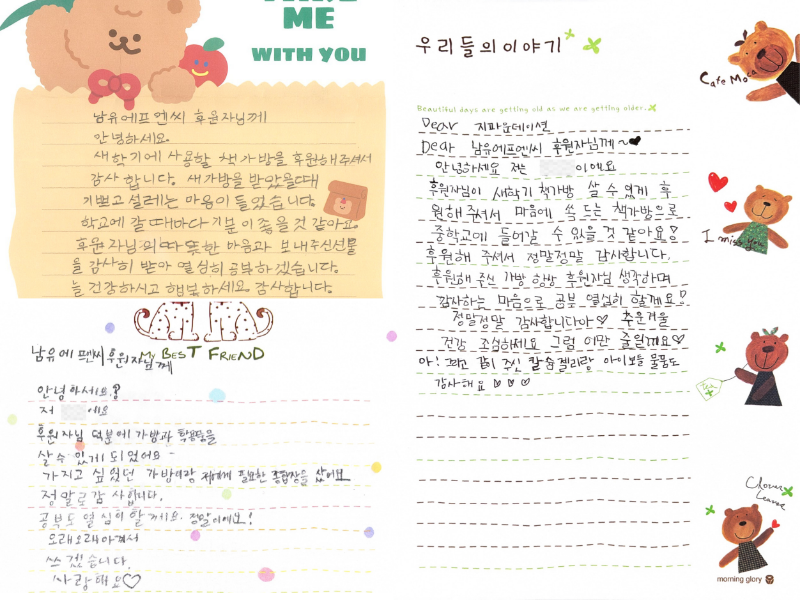 ME
WITH YOU
남유에프엔씨 후원자님께
안녕하세요.
새학기에 사용할 책가방을 후원해주셔서
감사합니다. 새가방을 받았을때
기쁘고 설레는 마음이 들었습니다.
학교에 갈 때마다 기분이 좋을 것 같아요.
후원자님의 따뜻한 마음과 보내주신선물
을 감사히 받아 열심히 공부하겠습니다.
늘 건강하시고 행복하세요. 감사합니다.
MY BEST FRIEND
남유에펜씨후원자님께
안녕하세요.?
저 에요
후원자님 덕분에 가방과 학용품을
살수 있게 되었어요~
가지고 싶었던 가방이랑 저에게 필요한 종합장을 샀어요
정말로감사합니다.
공부도 열심히할게요. 정말이에요!
오래오래아껴서
쓰겠습니다.
사랑해요♡
우리들의이야기
Beautiful days are getting old as we are getting older.
Dear 지파운데이션
Dear 남유에프엔씨 후원자님께~♥
안녕하세요 저는 이에요
후원자님이 새학기 책가방 살 수 있게 후
원해 주셔서 마음에 쏙 드는 책가방으로
중학교에 들어갈 수 있을 것 같아요!
후원해 주셔서 정말정말 감사합니다.
후원해 주신 가방 항상 후원자님 생각하며
감사하는 마음으로 공부 열심히 할께요!
정말정말 감사합니다아♡ 추운겨울
건강 조심하세요 그럼 이만 줄일께요♡
아! 그리고 같이 주신 칼슘젤리랑 아이보들 물품도
감사해요 ♡♡♡
Cafe Mo
I miss you
tea
morning glory